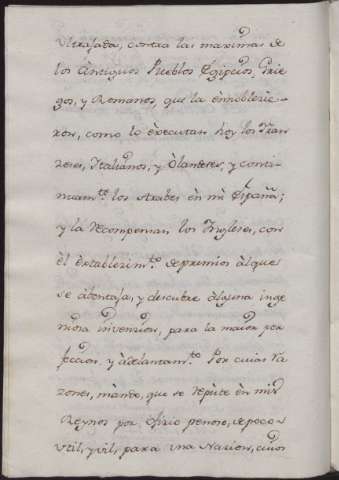 Ultrajada, contra las maximas de
los Antiguos Pueblos Egipcios, Grie-
gos, y Romanos, que la ennoblecie-
ron, como lo executan hoy los Fran
zeses, Italianos, y Olandeses, y conti-
nuamte. los Arabes en mi España;
y la recompensan los Ingleses, con
el establecimto. de premios àl que
se abentaja, y descubre àlguna inge
niosa invencion, para la maior per
feccion, y àdelantamto. Por cuias ra
zones, mando, que se repùte en mis
Reynos por oficio penoso, de poco
util, y vil, para una Nacion, cuios